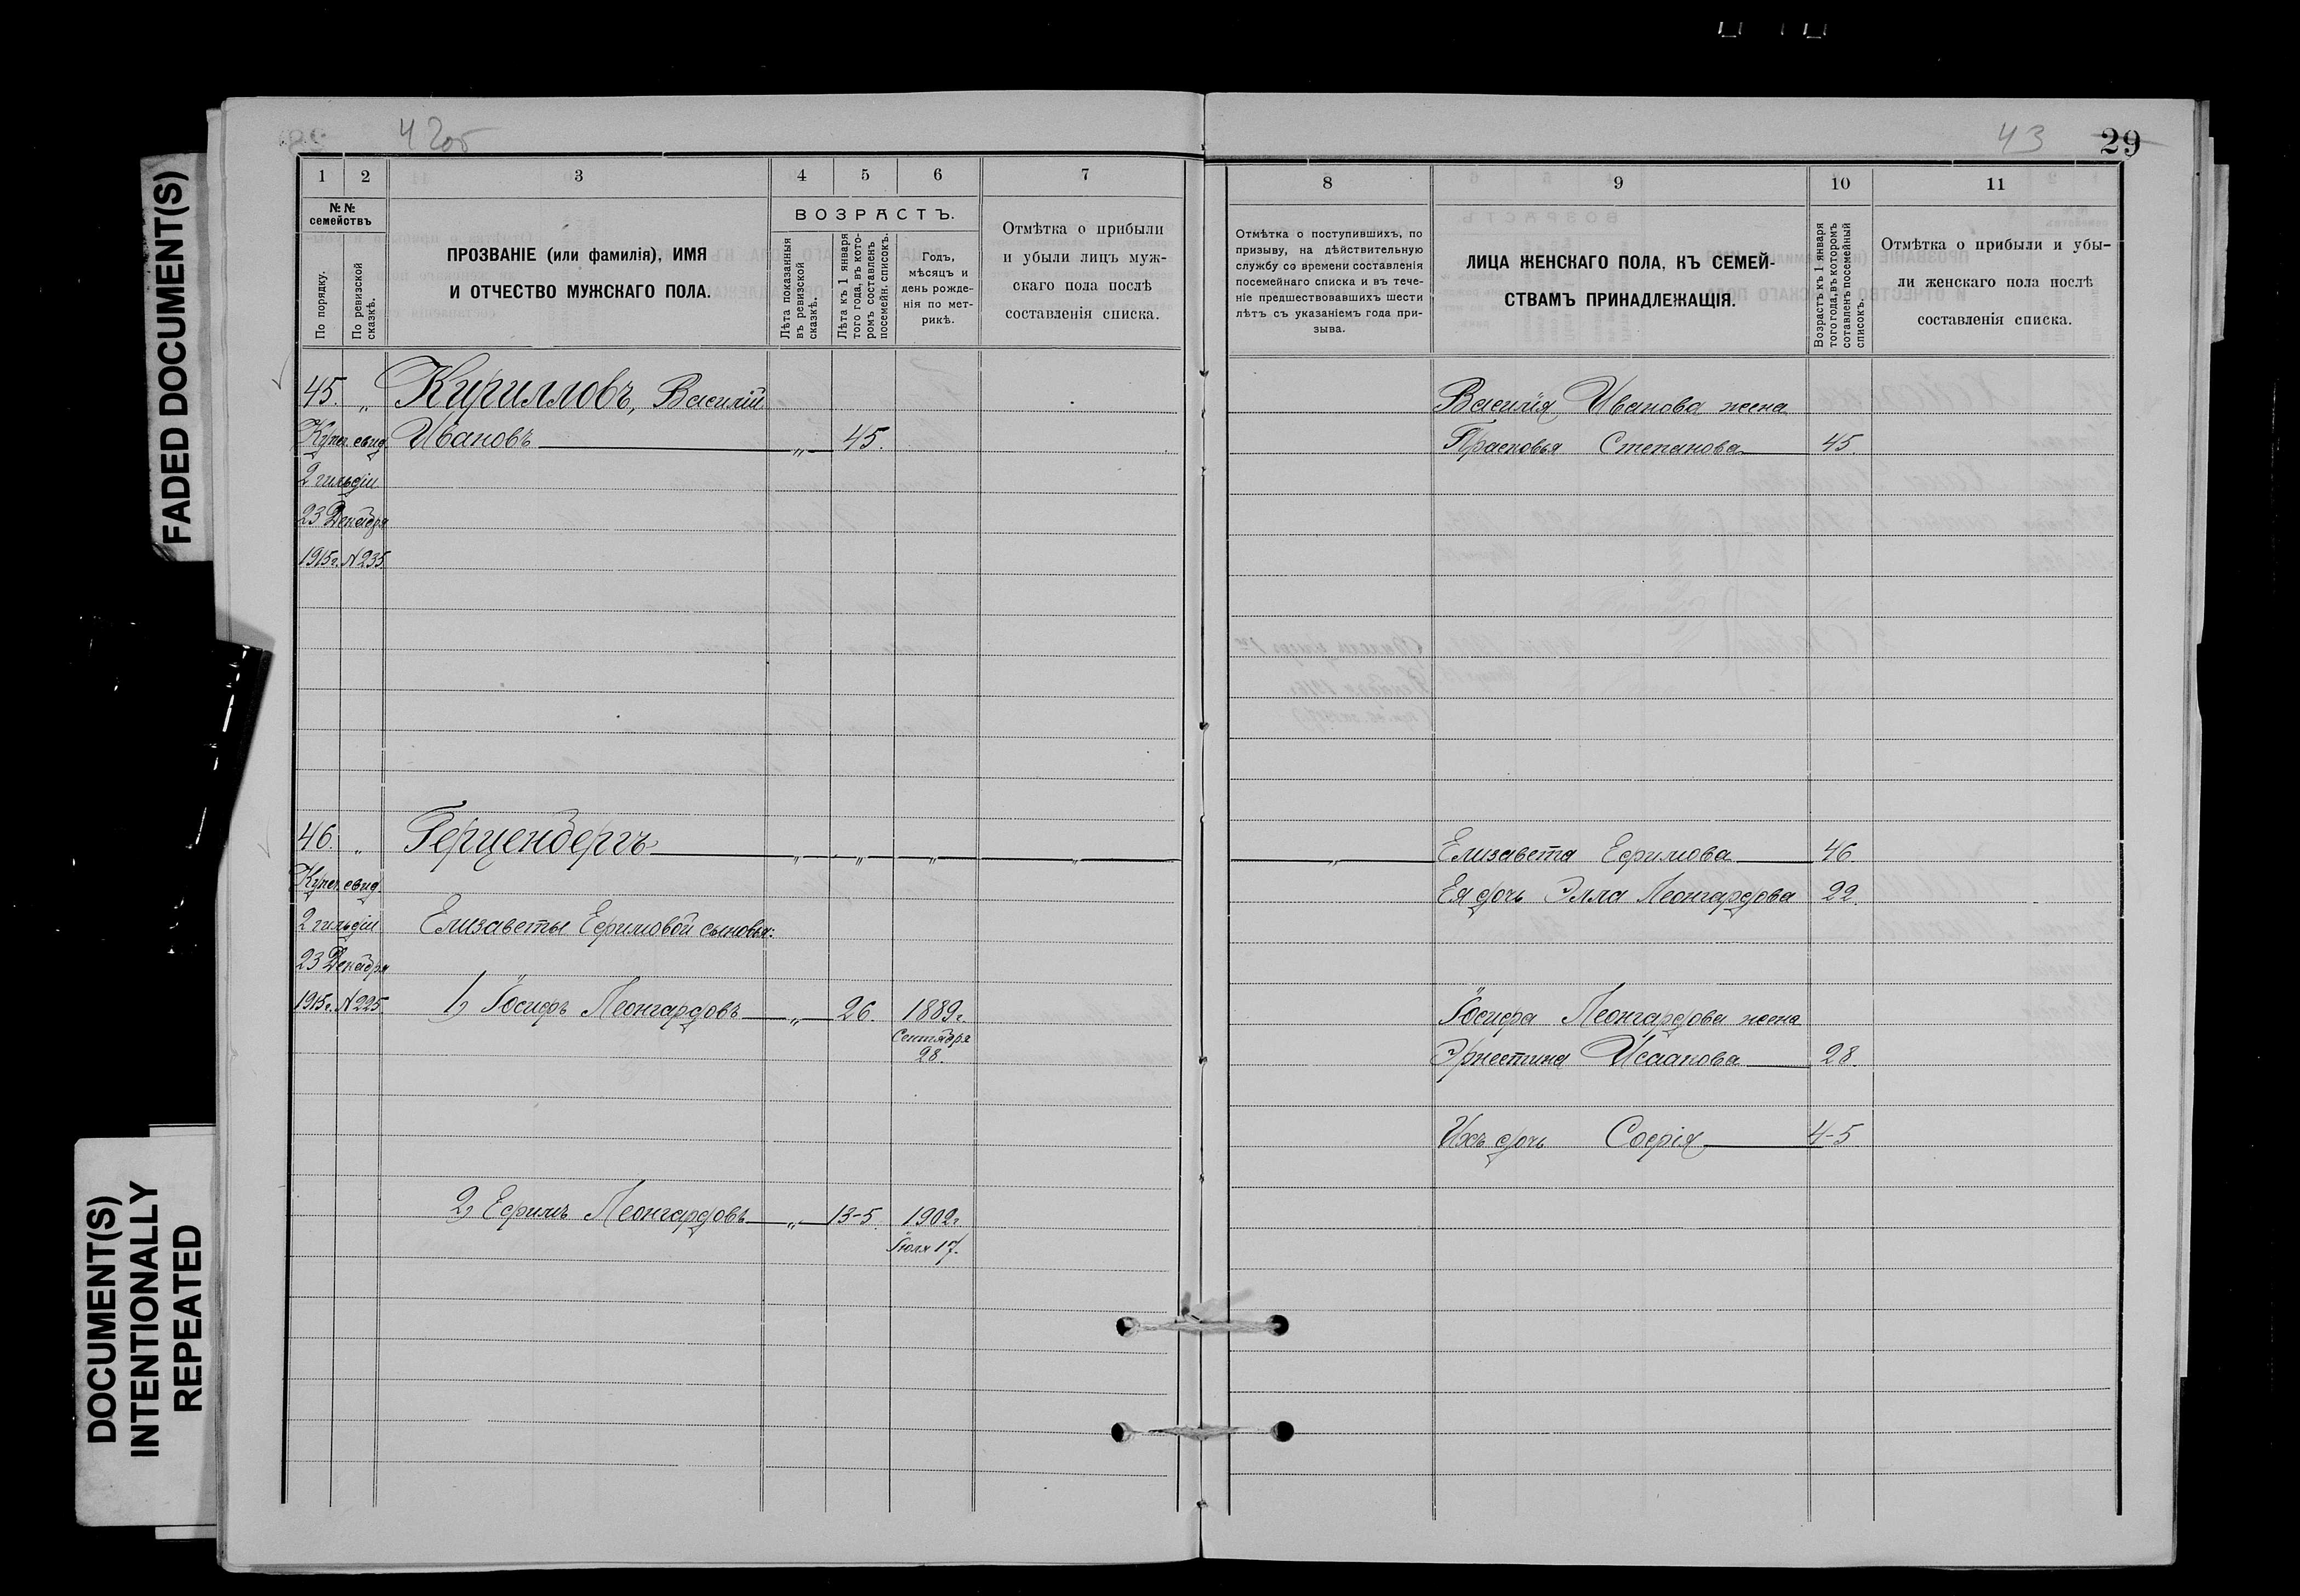 FADED DOCUMENT(S)
DOCUMENT(S)
INTENTIONALLY
REPEATED
42об
1 2 3 4 5 6 7
№№
семействъ
По порядку.
По ревизской
сказкѣ.
ПРОЗВАНІЕ (или фамилія), ИМЯ
И ОТЧЕСТВО МУЖСКАГО ПОЛА.
ВОЗРАСТЪ.
Лѣта показанныя
въ ревизской
сказкѣ.
Лѣта къ 1 января
того года, въ кото-
ромъ составленъ
посемейн. списокъ.
Годъ,
мѣсяцъ и
день рожде-
нія по мет-
рикѣ.
Отмѣтка о прибыли
и убыли лицъ муж-
скаго пола послѣ
составленія списка.
45. „ Кирилловъ, Василій
Купеч. свид. Ивановъ „ 45.
2 гильдіи
23 Декабря
1915г. N235.
46. „ Герценбергъ „ „ „ „
Купеч. свид.
2 гильдіи Елизаветы Ефимовой сыновья:
23 Декабря
1915г. N225. 1) Іосифъ Леонгардовъ „ 26. 1889г.
Сентября
28.
2) Ефимъ Леонгардовъ „ 13-5. 1902г.
Іюля 17.
43 29
8 9 10 11
Отмѣтка о поступившихъ, по
призыву, на дѣйствительную
службу со времени составленія
посемейнаго списка и въ тече-
ніе предшествовавшихъ шести
лѣтъ съ указаніемъ года при-
зыва.
ЛИЦА ЖЕНСКАГО ПОЛА, КЪ СЕМЕЙ-
СТВАМЪ ПРИНАДЛЕЖАЩІЯ.
Возрастъ къ 1 января
того года, въ которомъ
составленъ посемейный
списокъ.
Отмѣтка о прибыли и убы-
ли женскаго пола послѣ
составленія списка.
Василія Иванова жена
Прасковья Степанова 45.
„ Елизавета Ефимова 46.
Ея дочь Элла Леонгардова 22.
Іосифа Леонгардова жена
Эрнестина Исаакова 28.
Ихъ дочь Софія 4-5